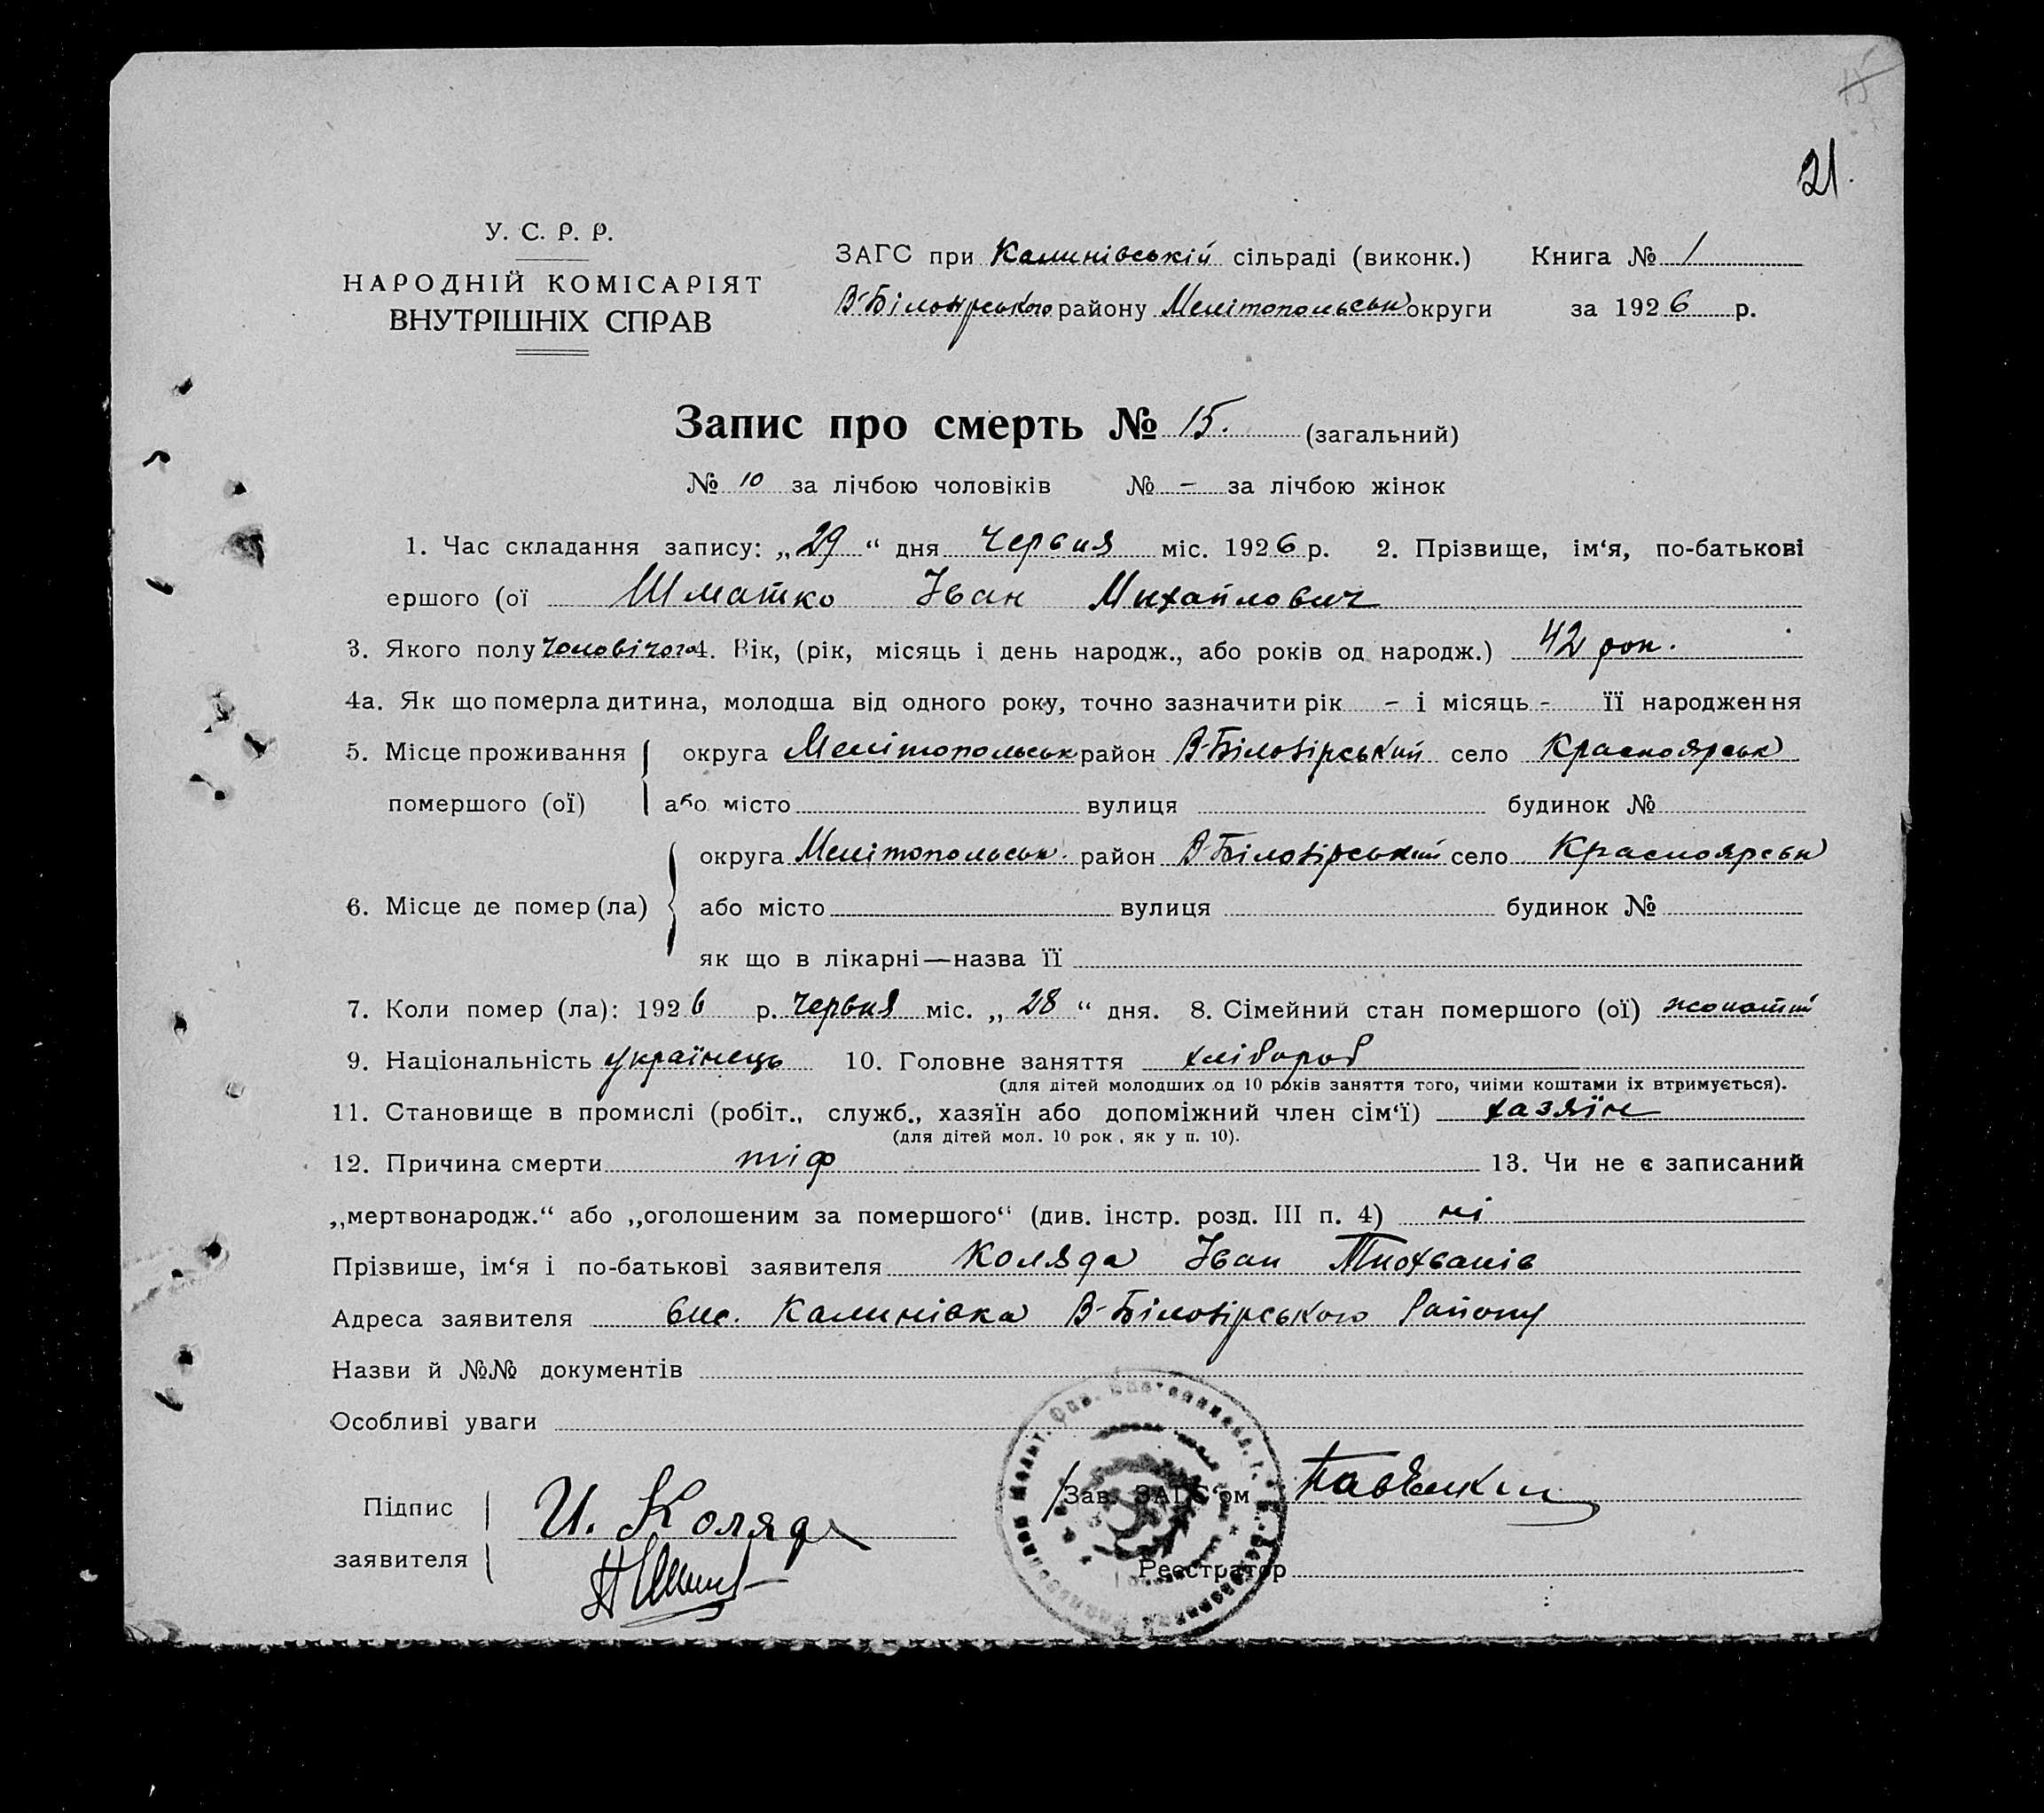 15
21.
У. С. Р. Р.
НАРОДНІЙ КОМІСАРІЯТ
ВНУТРІШНІХ СПРАВ
ЗАГС при Калинівській сільраді (виконк.) Книга № 1
В-Білозірського району Мелітопольськ округи за 1926 р.
Запис про смерть № 15. (загальний)
№ 10 за лічбою чоловіків № - за лічбою жінок
1. Час складання запису: „29“ дня Червня міс. 1926 р. 2. Прізвище, ім‘я, по-батькові
ершого (ої Шматко Іван Михайлович
3. Якого полу чоловічого 4. Вік, (рік, місяць і день народж., або років од народж.) 42 рок.
4а. Як що померла дитина, молодша від одного року, точно зазначити рік - і місяць - її народження
5. Місце проживання округа Мелітопольськ район В-Білозірський село Красноярськ
помершого (ої) або місто вулиця будинок №
округа Мелітопольськ. район В-Білозірський село Красноярськ
6. Місце де помер (ла) або місто вулиця будинок №
як що в лікарні—назва її
7. Коли помер (ла): 1926 р. Червня міс. „28“ дня. 8. Сімейний стан помершого (ої) жонатий
9. Національність українець 10. Головне заняття хлібороб
(для дітей молодших од 10 років заняття того, чиїми коштами їх втримується).
11. Становище в промислі (робіт., служб., хазяїн або допоміжний член сім‘ї) хазяїн
(для дітей мол. 10 рок, як у п. 10).
12. Причина смерти тіф 13. Чи не є записаний
„мертвонародж.“ або „оголошеним за помершого“ (див. інстр. розд. III п. 4) ні
Прізвише, ім‘я і по-батькові заявителя Коляда Іван
Адреса заявителя вис. Калинівка В-Білозірського Району
Назви й №№ документів
Особливі уваги
Підпис И. Коляда Зав. ЗАГС‘ом
заявителя Реєстратор